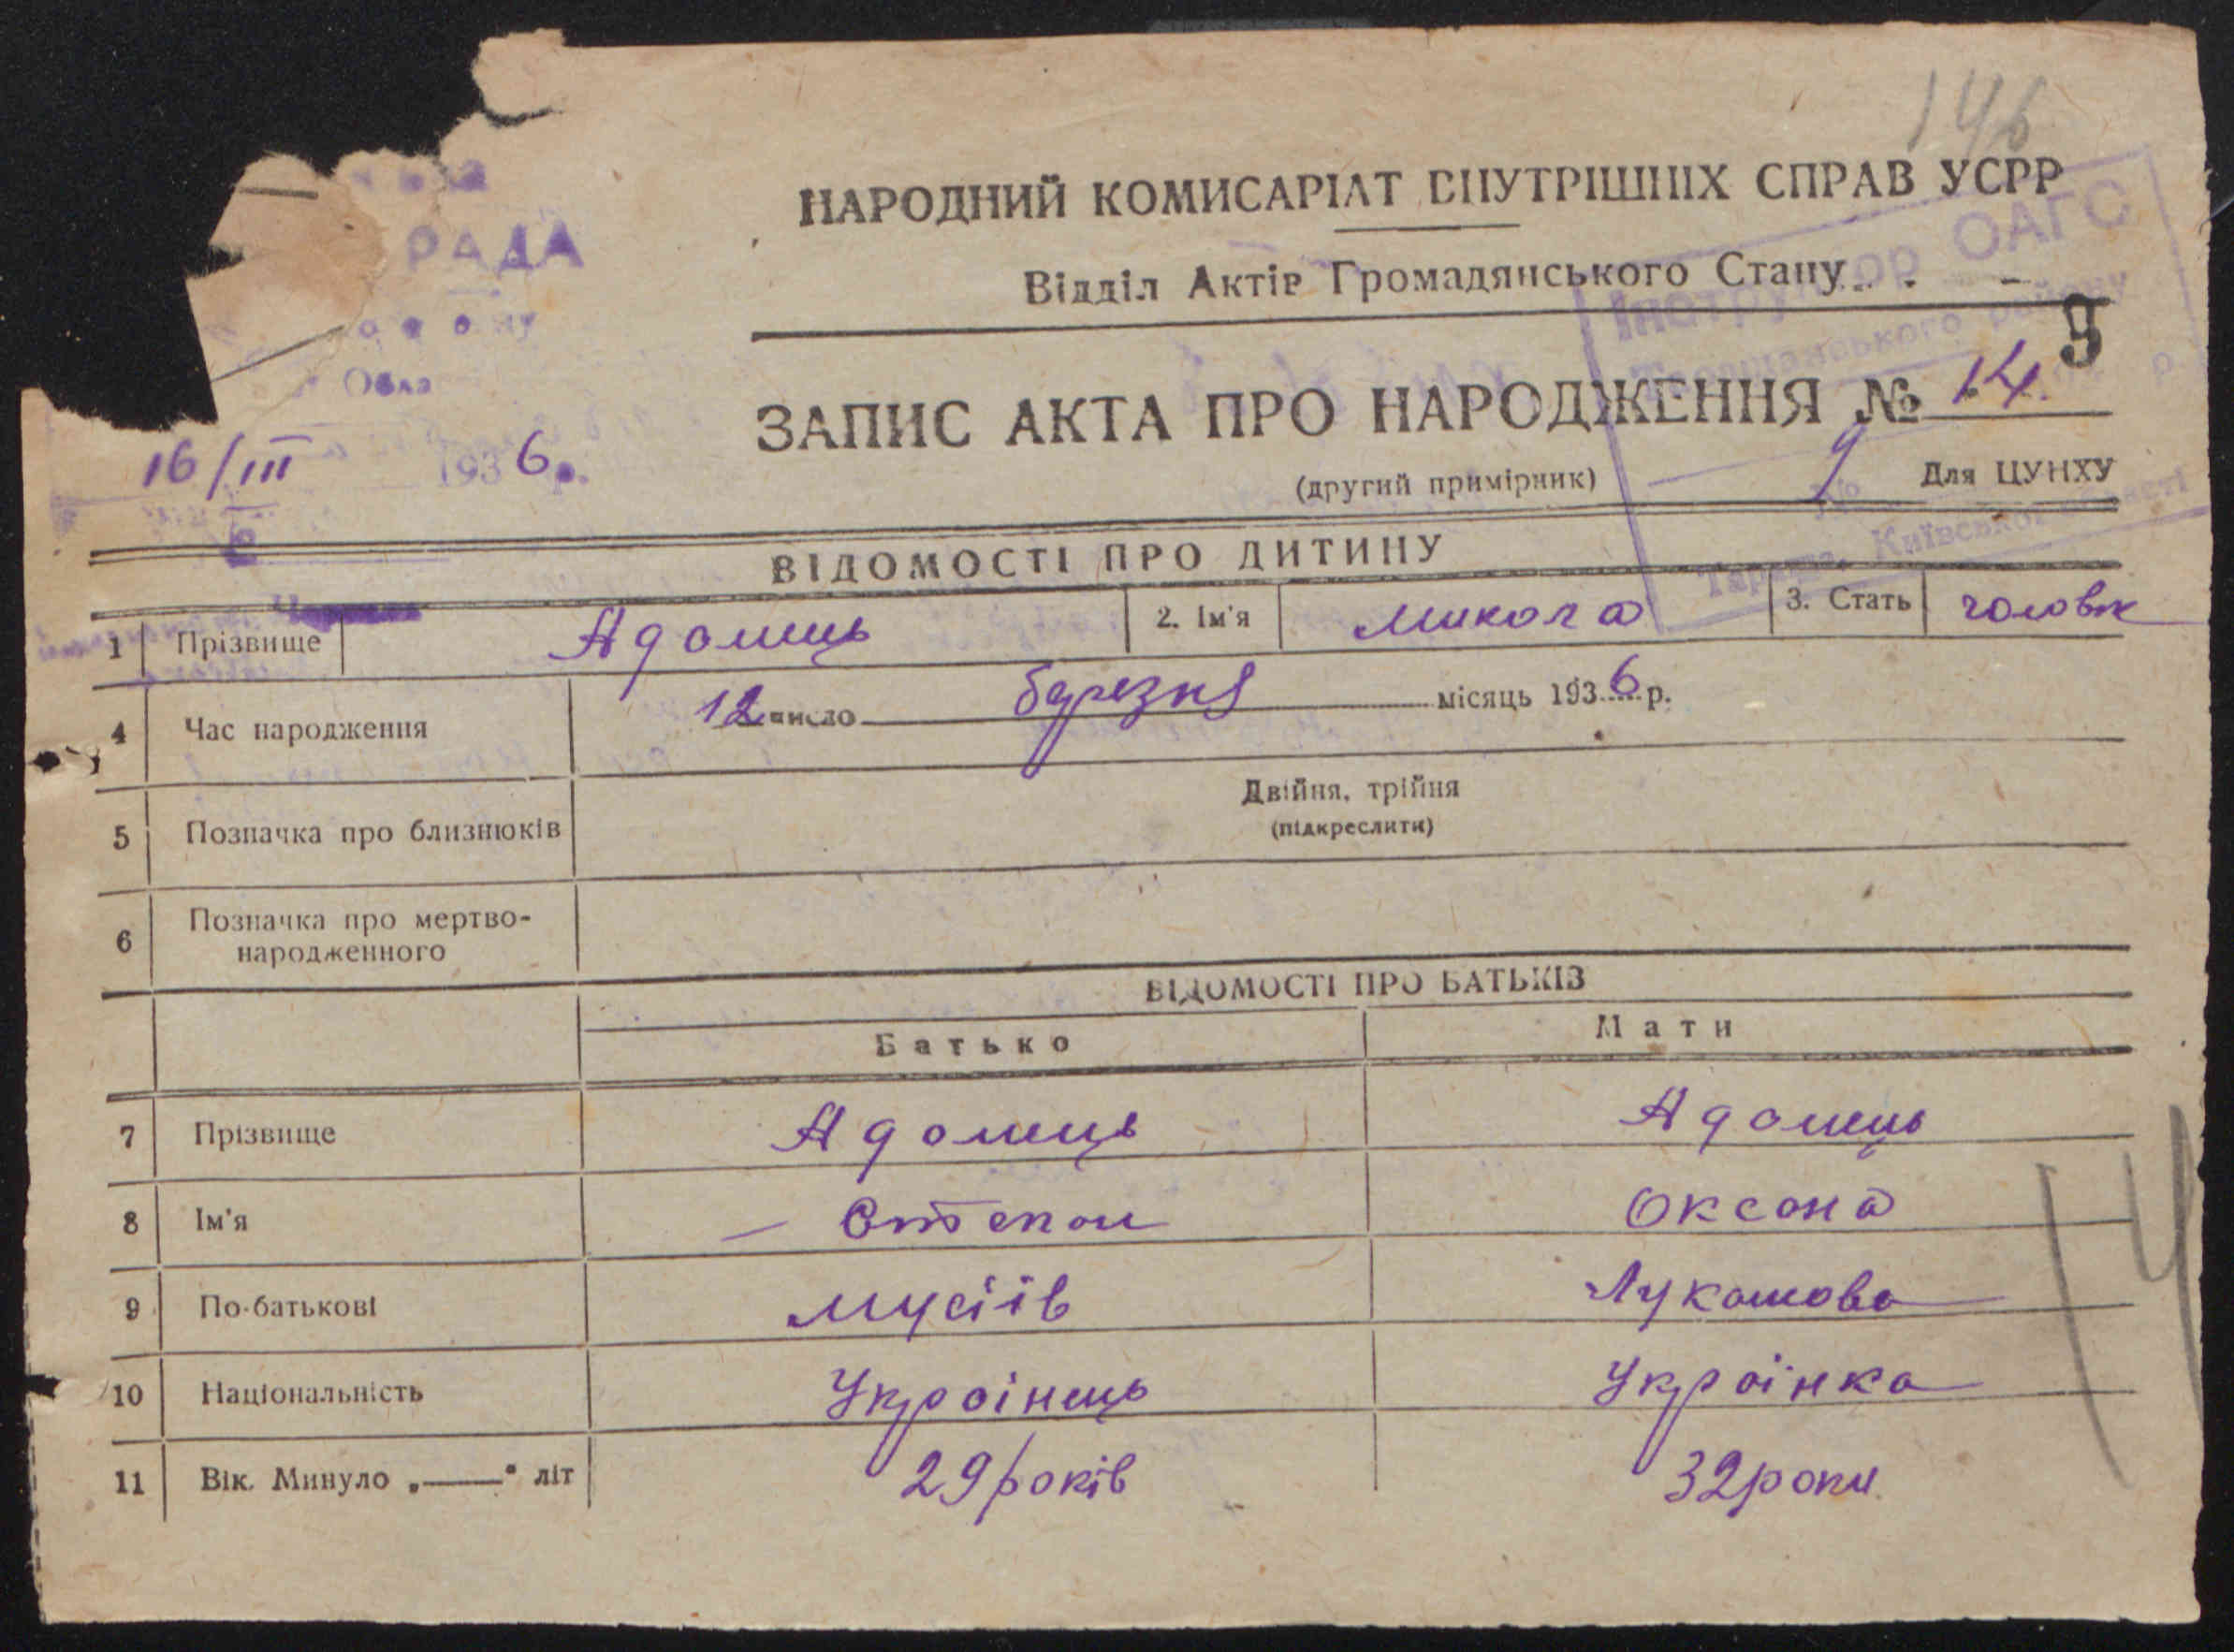 146
НАРОДНИЙ КОМИСАРІАТ ВНУТРІШНІХ СПРАВ УСРР
РАДА
Відділ Актів Громадянського Стану
Інструктор ОАГС
Таращанського району
9
ЗАПИС АКТА ПРО НАРОДЖЕННЯ № 14
16/III 1936 р.
(другий примірник)
9
Для ЦУНХУ
№
Тараща, Київської області
ВІДОМОСТІ ПРО ДИТИНУ
1 Прізвище Адомець 2. Ім'я Микола 3. Стать чоловік
4 Час народження 12 число березня місяць 1936 р.
5 Позначка про близнюків Двійня, трійня
(підкреслити)
6 Позначка про мертво-
народженного
ВІДОМОСТІ ПРО БАТЬКІВ
Батько Мати
7 Прізвище Адомець Адомець
8 Ім'я Степан Оксана
9 По-батькові Мусіїв Лукашова
10 Національність Українець Українка
11 Вік. Минуло „——“ літ 29 років 32 роки
14